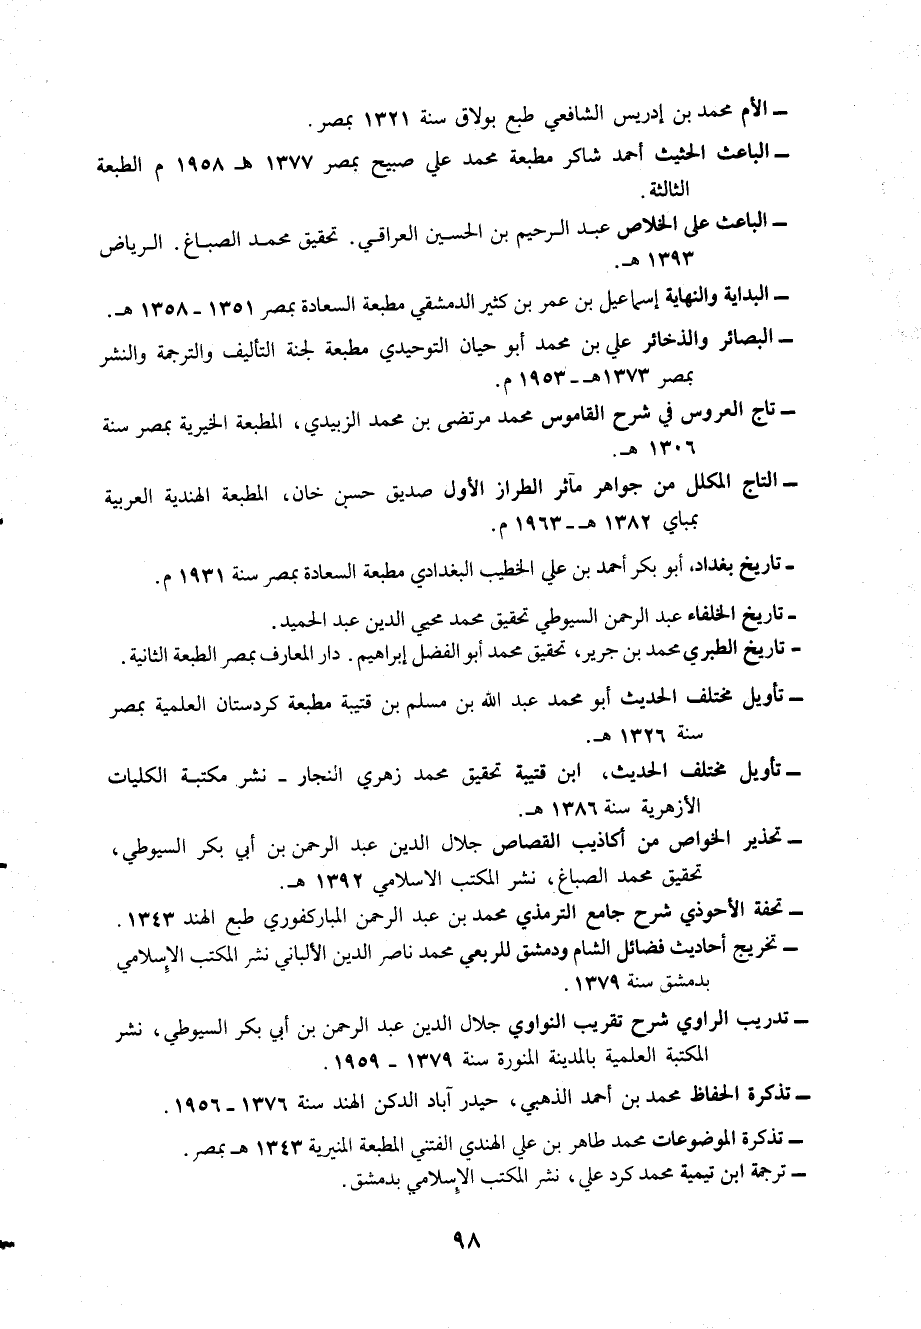 ــ الأم محمد بن إدريس الشافعي طبع بولاق سنة ١٣٢١ بمصر.
ــ الباعث الحثيث أحمد شاكر مطبعة محمد علي صبيح بمصر ١٣٧٧ هـ ١٩٥٨ م الطبعة
الثالثة.
ــ الباعث على الخلاص عبد الرحيم بن الحسين العراقي. تحقيق محمد الصباغ. الرياض
١٣٩٣ هـ.
ــ البداية والنهاية إسماعيل بن عمر بن كثير الدمشقي مطبعة السعادة بمصر ١٣٥١ ـ ١٣٥٨ هـ.
ــ البصائر والذخائر علي بن محمد أبو حيان التوحيدي مطبعة لجنة التأليف والترجمة والنشر
بمصر ١٣٧٣هـ ـ ١٩٥٣ م.
ــ تاج العروس في شرح القاموس محمد مرتضى بن محمد الزبيدي، المطبعة الخيرية بمصر سنة
١٣٠٦ هـ.
ــ التاج المكلل من جواهر مآثر الطراز الأول صديق حسن خان، المطبعة الهندية العربية
بمباي ١٣٨٢ هـ ـ ١٩٦٣ م.
ـ تاريخ بغداد، أبو بكر أحمد بن علي الخطيب البغدادي مطبعة السعادة بمصر سنة ١٩٣١ م.
ـ تاريخ الخلفاء عبد الرحمن السيوطي تحقيق محمد محيي الدين عبد الحميد.
ـ تاريخ الطبري محمد بن جرير، تحقيق محمد أبو الفضل إبراهيم. دار المعارف بمصر الطبعة الثانية.
ــ تأويل مختلف الحديث أبو محمد عبد الله بن مسلم بن قتيبة مطبعة كردستان العلمية بمصر
سنة ١٣٢٦ هـ.
ــ تأويل مختلف الحديث، ابن قتيبة تحقيق محمد زهري النجار ـ نشر مكتبة الكليات
الأزهرية سنة ١٣٨٦ هـ.
ــ تحذير الخواص من أكاذيب القصاص جلال الدين عبد الرحمن بن أبي بكر السيوطي،
تحقيق محمد الصباغ، نشر المكتب الاسلامي ١٣٩٢ هـ.
ــ تحفة الأحوذي شرح جامع الترمذي محمد بن عبد الرحمن المباركفوري طبع الهند ١٣٤٣.
ــ تخريج أحاديث فضائل الشام ودمشق للربعي محمد ناصر الدين الألباني نشر المكتب الإسلامي
بدمشق سنة ١٣٧٩.
ــ تدريب الراوي شرح تقريب النواوي جلال الدين عبد الرحمن بن أبي بكر السيوطي، نشر
المكتبة العلمية بالمدينة المنورة سنة ١٣٧٩ ـ ١٩٥٩.
ــ تذكرة الحفاظ محمد بن أحمد الذهبي، حيدر آباد الدكن الهند سنة ١٣٧٦ ـ ١٩٥٦.
ــ تذكرة الموضوعات محمد طاهر بن علي الهندي الفتني المطبعة المنيرية ١٣٤٣ هـ بمصر.
ــ ترجمة ابن تيمية محمد كرد علي، نشر المكتب الإسلامي بدمشق.
٩٨